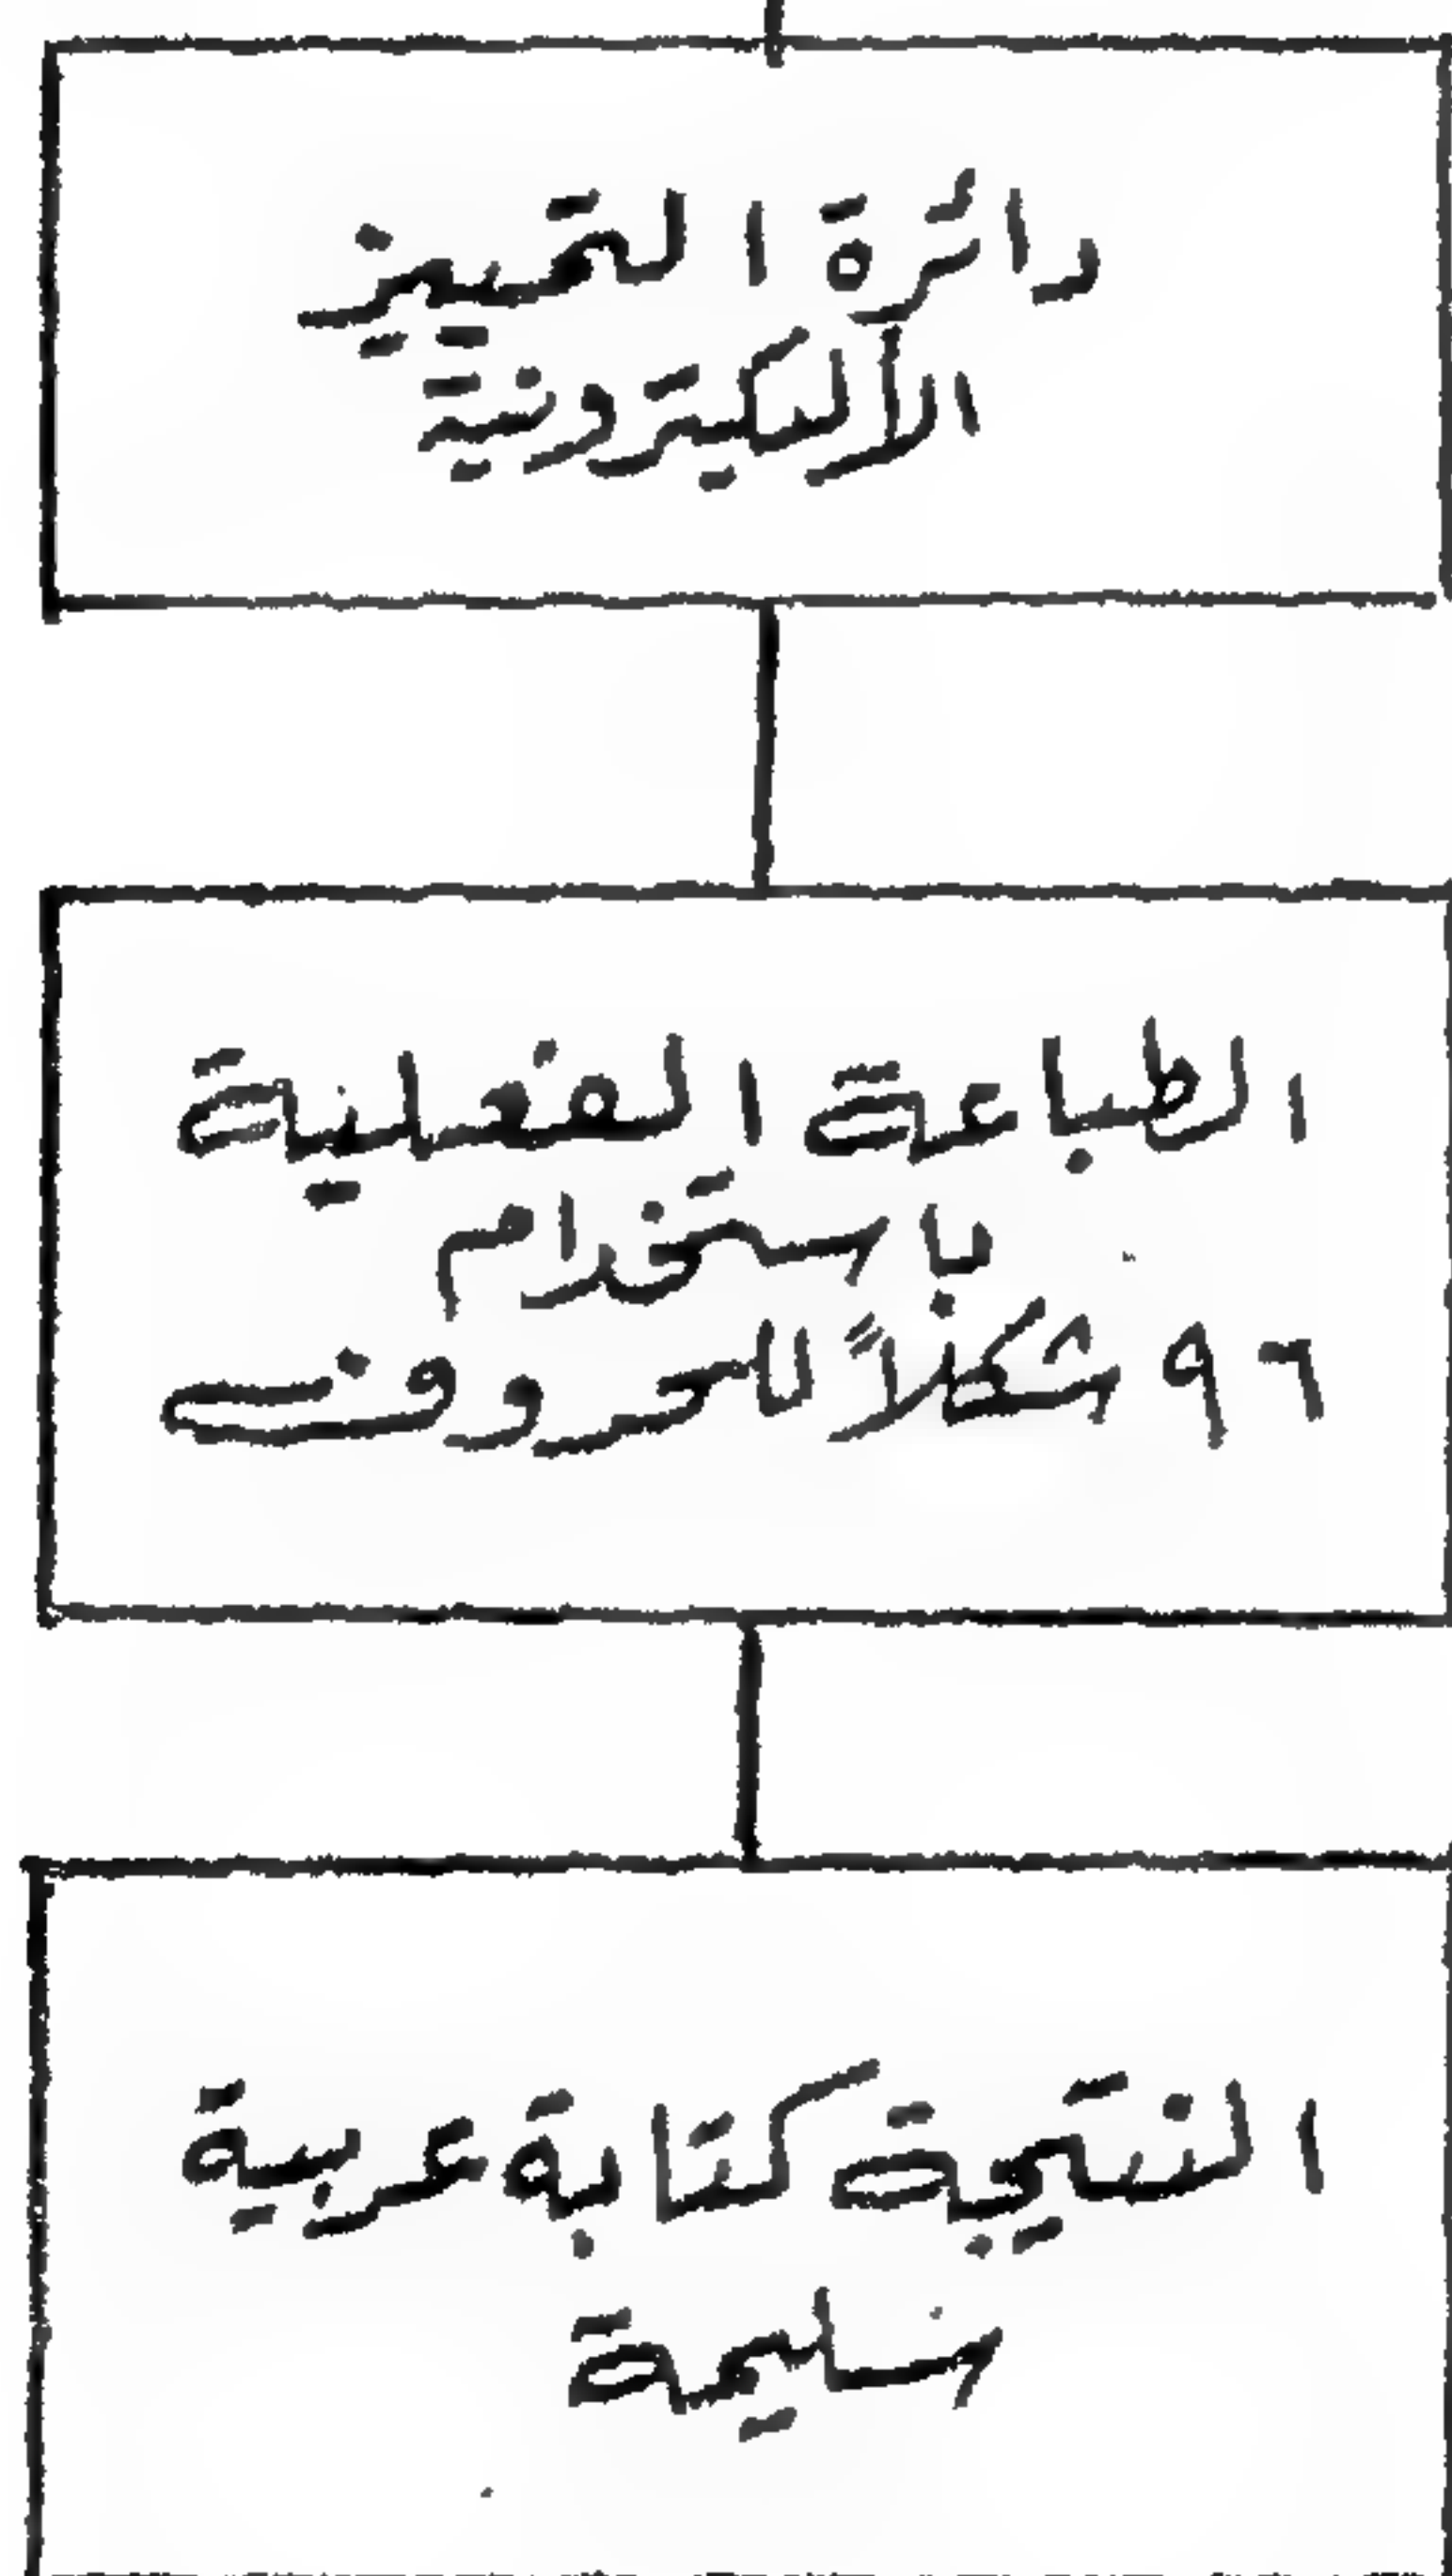 دائرة التمييز
الألكيترونية
الطباعة الفعلية
باستخدام
٩٦ شكلاً للحروف
النتيجة كتابة عربية
سليمة